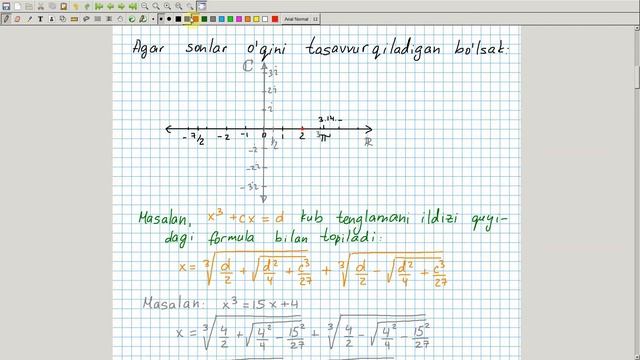 Arial Normal 12
Agar sonlar o'qini tasavvur qiladigan bo'lsak:
C
3i
2i
i
3.14...
-7/2 -2 -1 0 1/2 1 2 3 π R
-i
-2i
-3i
Masalan, x³ + cx = d kub tenglamani ildizi quyi-
dagi formula bilan topiladi:
x = ³√(d/2 + √(d²/4 + c³/27)) + ³√(d/2 - √(d²/4 + c³/27))
Masalan: x³ = 15x + 4
x = ³√(4/2 + √(4²/4 - 15²/27)) + ³√(4/2 - √(4²/4 - 15²/27))